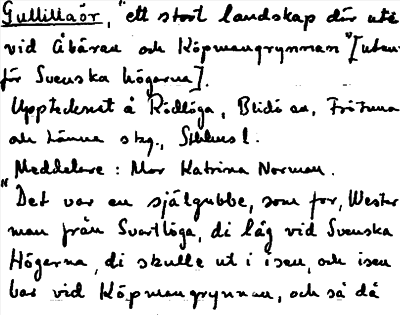 Gullillaör, "ett stort landskap där ute
vid Åbäran och Köpmangrynnan" [utan-
för Svenska högarna].
Upptecknat å Rödlöga, Blidö sn, Frötuna
och Länna skg., Sthlms l.
Meddelare: Mor Katrina Norman.
"Det var en själgubbe, som for, Wester
man från Svartlöga, di låg vid Svenska
Högerna, di skulle ut i isen, och isen
bar vid Köpmangrynnan, och så då